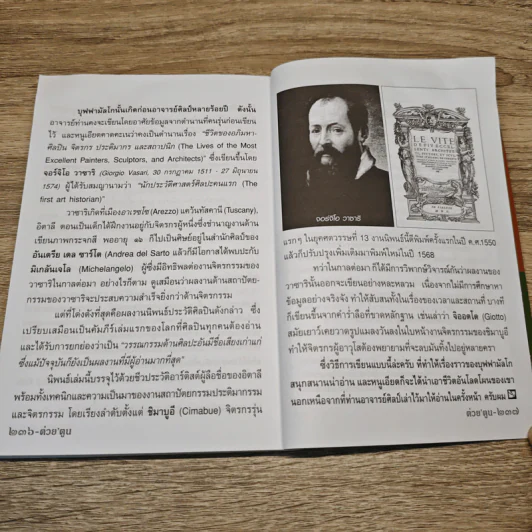 บุฟฟามัลโกนั้นเกิดก่อนอาจารย์ศิลป์หลายร้อยปี ดังนั้น
อาจารย์ท่านคงจะเขียนโดยอาศัยข้อมูลจากตำนานที่คนรุ่นก่อนเขียน
ไว้ และหนูเอียดคาดคะเนว่าคงเป็นตำนานเรื่อง "ชีวิตของอภิมหา-
ศิลปิน จิตรกร ประติมากร และสถาปนิก (The Lives of the Most
Excellent Painters, Sculptors, and Architects)" ซึ่งเขียนขึ้นโดย
จอร์จิโอ วาซารี (Giorgio Vasari, 30 กรกฎาคม 1511 - 27 มิถุนายน
1574) ผู้ได้รับสมญานามว่า "นักประวัติศาสตร์ศิลปะคนแรก (The
first art historian)"
วาซารีเกิดที่เมืองอาเรซโซ (Arezzo) แคว้นทัสคานี (Tuscany),
อิตาลี ตอนเป็นเด็กได้ฝึกงานกับจิตรกรผู้หนึ่งซึ่งชำนาญงานด้าน
เขียนภาพกระจกสี พออายุ ๑๖ ก็ไปเป็นศิษย์อยู่ในสำนักศิลป์ของ
อันเดรีย เดล ซาร์โต (Andrea del Sarto) แล้วก็มีโอกาสได้พบปะกับ
มิเกลันเจโล (Michelangelo) ผู้ซึ่งมีอิทธิพลต่องานจิตรกรรมของ
วาซารีในกาลต่อมา อย่างไรก็ตาม ดูเสมือนว่าผลงานด้านสถาปัตย-
กรรมของวาซารีจะประสบความสำเร็จยิ่งกว่าด้านจิตรกรรม
แต่ที่โด่งดังที่สุดคือผลงานนิพนธ์ประวัติศิลปินดังกล่าว ซึ่ง
เปรียบเสมือนเป็นคัมภีร์เล่มแรกของโลกที่ศิลปินทุกคนต้องอ่าน
และได้รับการยกย่องว่าเป็น "วรรณกรรมด้านศิลปะอันมีชื่อเสียงเก่าแก่
ซึ่งแม้ปัจจุบันก็ยังเป็นผลงานที่มีผู้อ่านมากที่สุด"
นิพนธ์เล่มนี้บรรจุไว้ด้วยชีวประวัติอาร์ติสต์ผู้ลือชื่อของอิตาลี
พร้อมทั้งเทคนิกและความเป็นมาของงานสถาปัตยกรรมประติมากรรม
และจิตรกรรม โดยเรียงลำดับตั้งแต่ ชิมาบูอี (Cimabue) จิตรกรรุ่น
๒๓๖-ต่วย'ตูน
จอร์จิโอ วาซารี
LE VITE
แรกๆ ในยุคศตวรรษที่ 13 งานนิพนธ์นี้ตีพิมพ์ครั้งแรกในปี ค.ศ.1550
แล้วก็ปรับปรุงเพิ่มเติมมาพิมพ์ใหม่ในปี 1568
ทว่าในกาลต่อมา ก็ได้มีการวิพากษ์วิจารณ์กันว่าผลงานของ
วาซารีนั้นออกจะเขียนอย่างหละหลวม เนื่องจากไม่มีการศึกษาหา
ข้อมูลอย่างจริงจัง ทำให้สับสนทั้งในเรื่องของเวลาและสถานที่ บางที
ก็เขียนขึ้นจากคำร่ำลือที่ขาดหลักฐาน เช่นเล่าว่า จิออตโต (Giotto)
สมัยเยาว์เคยวาดรูปแมลงวันลงในใบหน้างานจิตรกรรมของชิมาบูอี
ทำให้จิตรกรผู้อาวุโสต้องพยายามที่จะลบมันทิ้งไปอยู่หลายครา
ซึ่งวิธีการเขียนแบบนี้ล่ะครับ ที่ทำให้เรื่องราวของบุฟฟามัลโก
สนุกสนานน่าอ่าน และหนูเอียดก็จะได้นำเอาชีวิตอันโลดโผนของเขา
นอกเหนือจากที่ท่านอาจารย์ศิลป์เล่าไว้มาให้อ่านในครั้งหน้า ครับผม
ต่วย'ตูน-๒๓๗